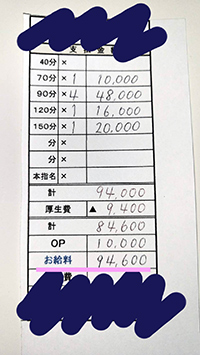 支 金
40分 ×
70分 × 1 10,000
90分 × 4 48,000
120分 × 1 16,000
150分 × 1 20,000
分 ×
分 ×
本指名 ×
計 94,000
厚生費 ▲ 9,400
計 84,600
OP 10,000
お給料 94,600
費